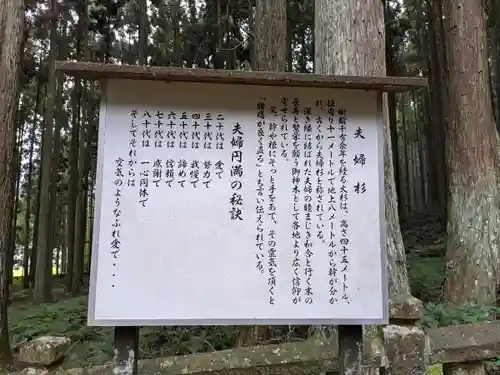 夫婦杉
樹齢千百余年を経る大杉は、高さ四十五メートル、
根廻り十一メートルで地上八メートルから幹が分か
れ、古くから夫婦杉と称されている。
深き縁に結ばれた夫婦の睦まじき和合と行く末の
長寿と繁栄を願う御神木として各地より広く信仰が
寄せられている。
又、幹や根にそっと手をあて、その霊気を頂くと
「腰痛が良く直る」とも言い伝えられている。
夫婦円満の秘訣
二十代は 愛で
三十代は 努力で
四十代は 我慢で
五十代は 諦めで
六十代は 信頼で
七十代は 感謝で
八十代は 一心同体で
そしてそれからは
空気のようなふれ愛で・・・